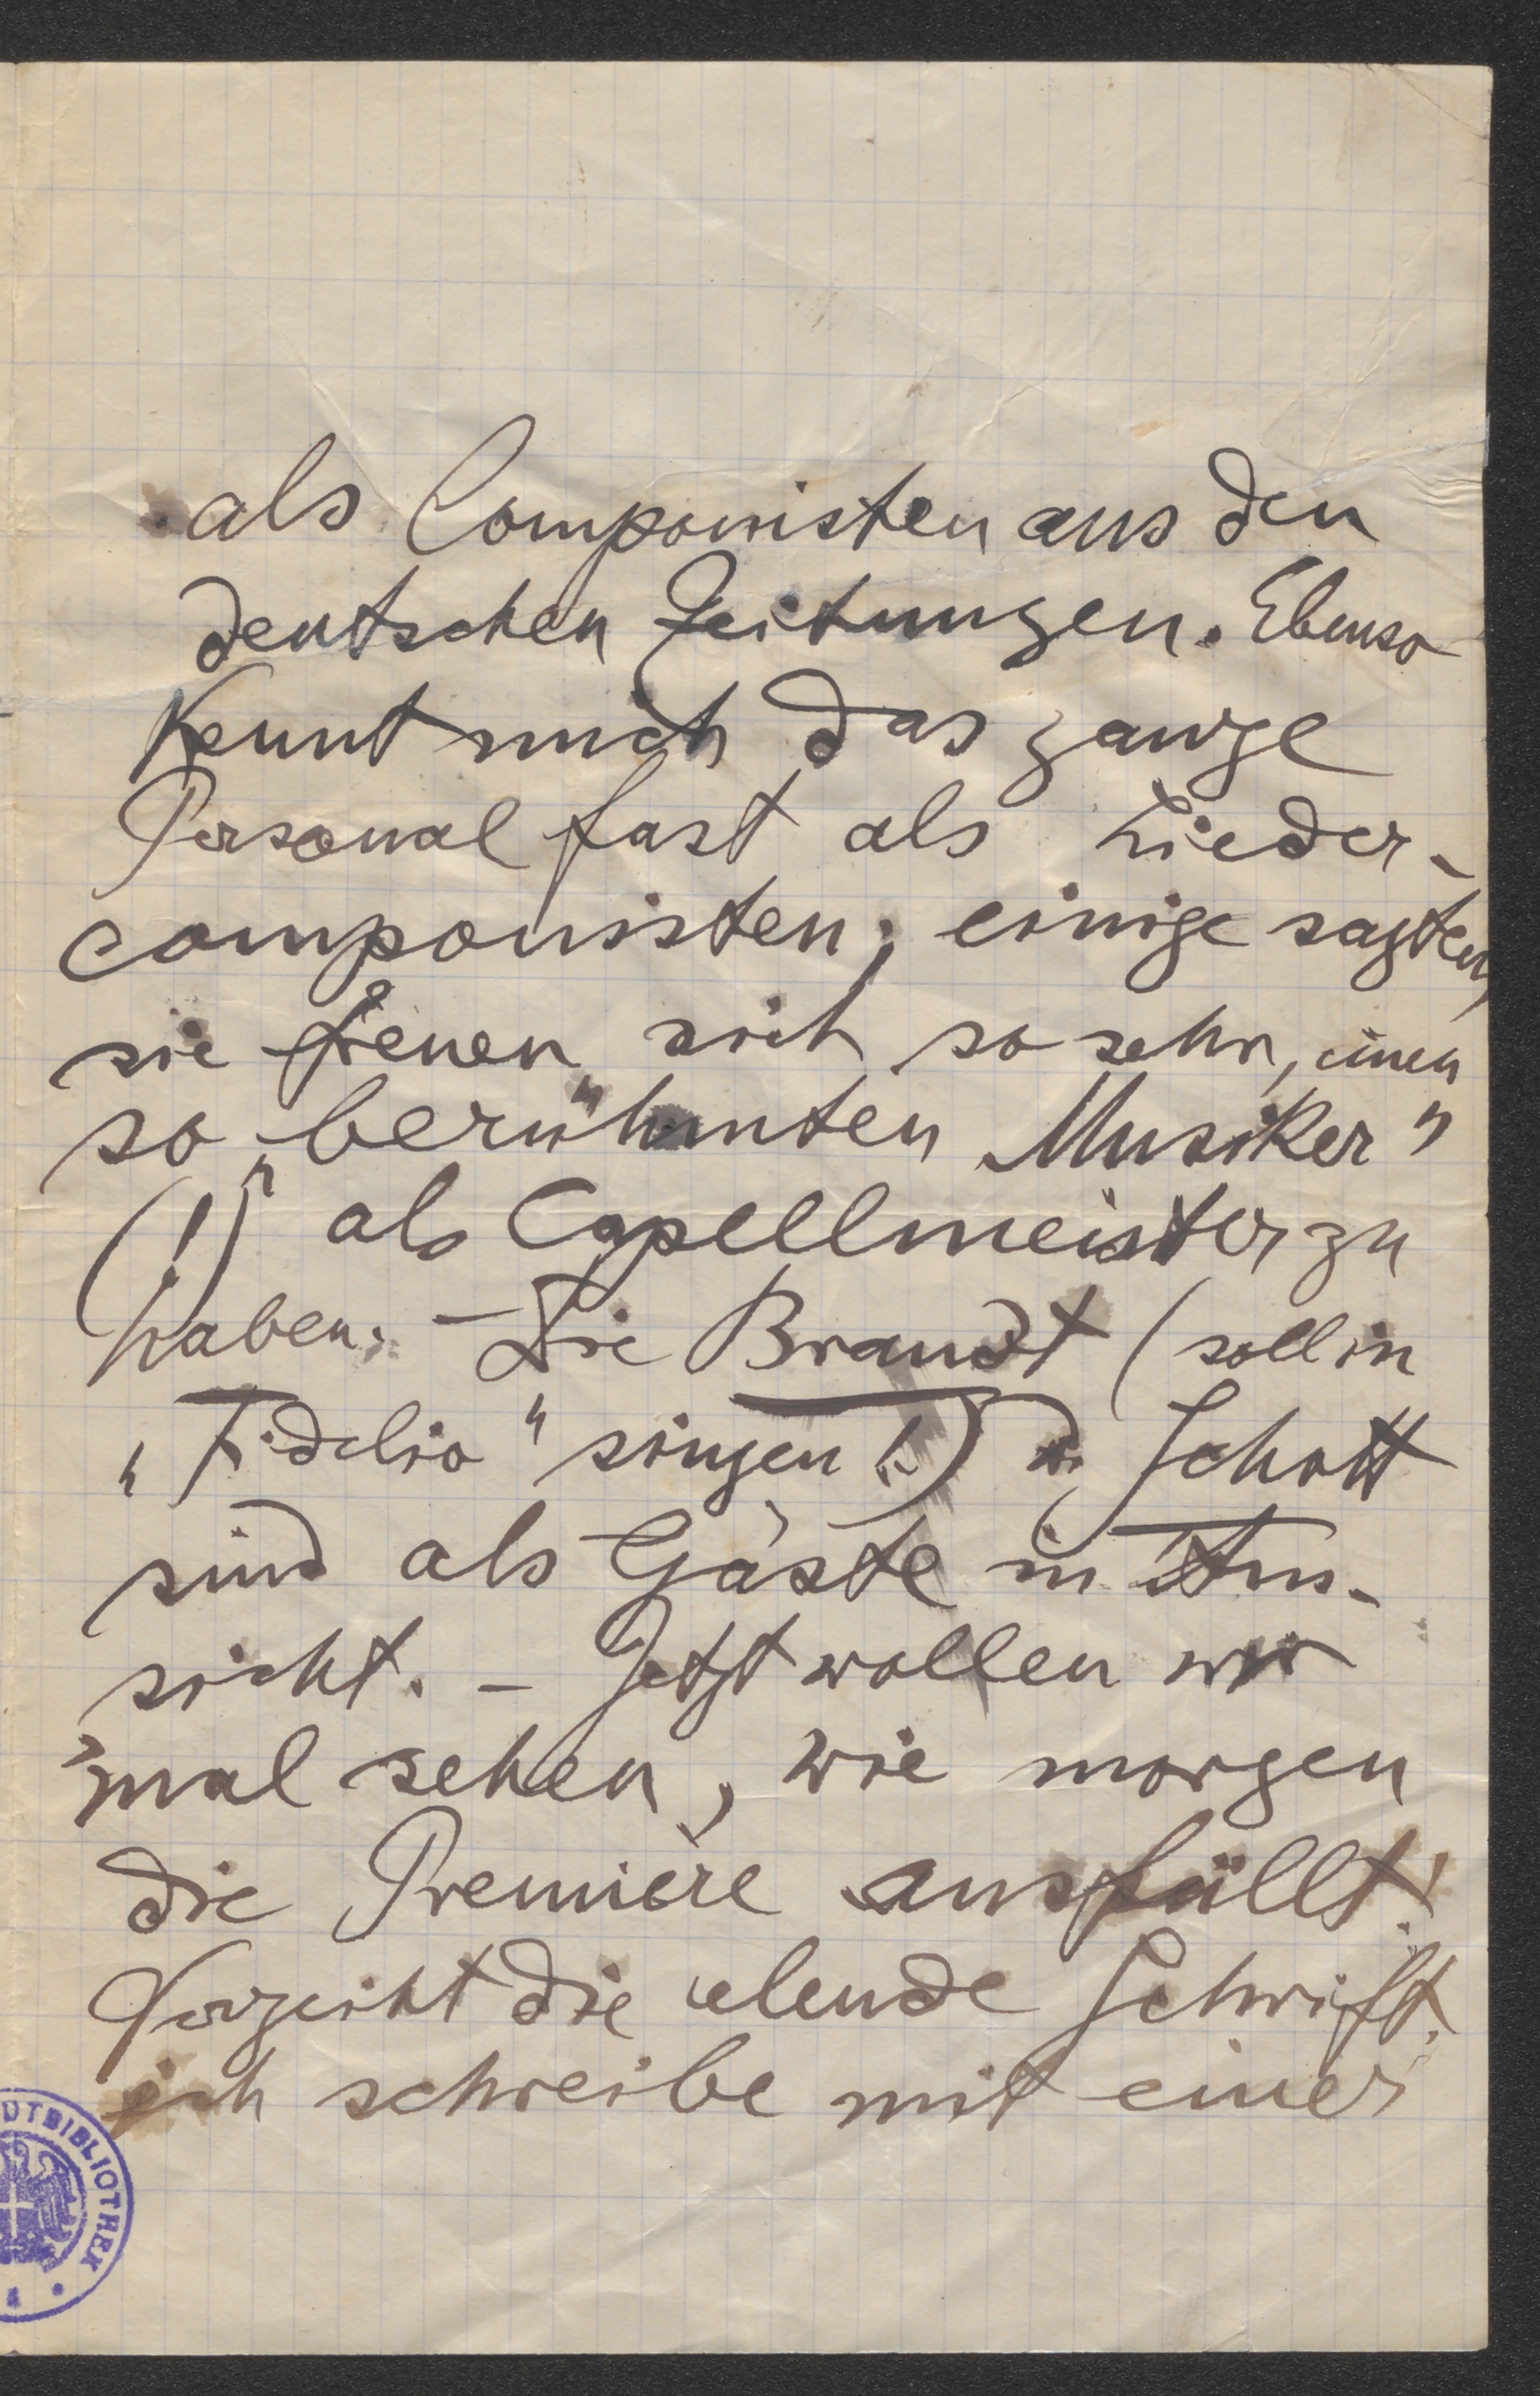 als Componisten aus den
deutschen Zeitungen. Ebenso
kennt mich das ganze
Personal fast als Lieder-
componisten; einige sagten,
sie freuen sich so sehr, einen
so „berühmten Musiker"
(!) als Capellmeister zu
haben. – Die Brandt (soll in
„Fidelio" singen!) u. Schott
sind als Gäste in Aus-
sicht. – Jetzt wollen wir
'mal sehen, wie morgen
die Premiére ausfällt!
Verzeiht die elende Schrift,
ich schreibe mit einer
DTBIBLIOTHEK